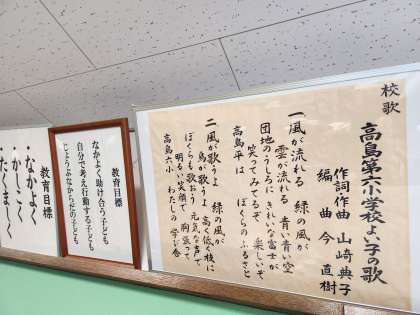 校歌
高島第六小学校よい子の歌
作詞作曲 山崎典子
編曲 今直樹
一風が流れる 緑の風が
雲が流れる 青い青い空
団地のうしろに きれいな富士が
笑ってみてるぞ 楽しいぞ
高島平は ぼくらのふるさと
二風が歌うよ 緑の風が
鳥が歌うよ 高く低く枝に
ぼくらも歌おう 元気な声で
明るい笑顔で 胸張って
高島六小 わたしの学び舎
教育目標
なかよく助け合う子ども
自分で考え行動する子ども
じょうぶなからだの子ども
教育目標
なかよく
かしこく
たくましく